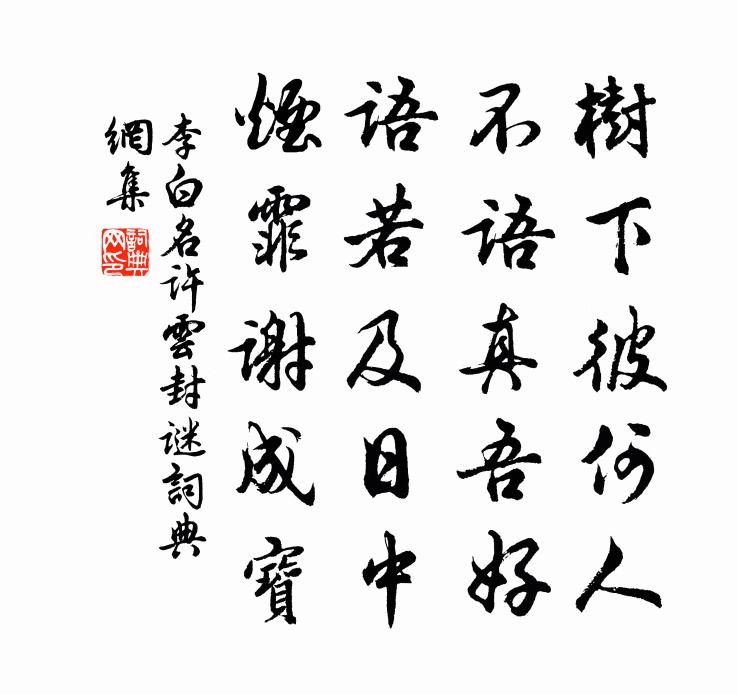 樹下彼何人
不語真吾好
語若及日中
煙霏谢成寶
李白名許雲封谜詞典
網集
詞典
网印